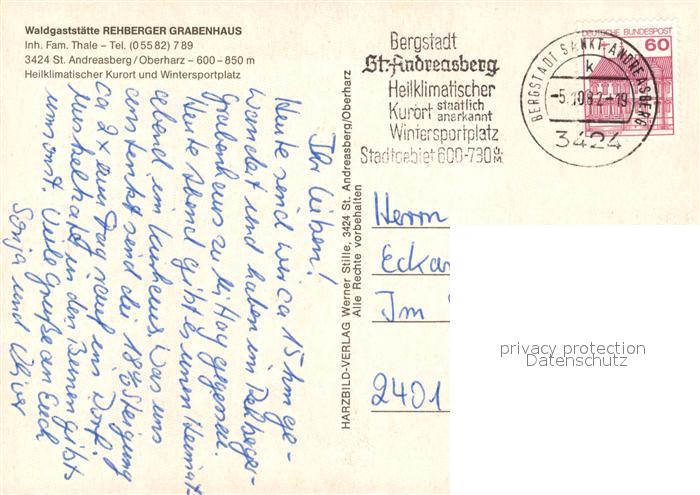 Waldgaststätte REHBERGER GRABENHAUS
Inh. Fam. Thale – Tel. (0 55 82) 7 89
3424 St. Andreasberg / Oberharz – 600 – 850 m
Heilklimatischer Kurort und Wintersportplatz
Ihr Lieben!
Heute sind wir ca 15 km ge-
wandert und haben im Rehberger-
Grabenhaus zu Mittag gegessen.
Heute Abend gibt es einen Heimat-
abend im Kurhaus. Was uns
anstinkt sind die 18% Steigung
ca 2x am Tag rauf ins Dorf.
Muskelkater in den Beinen gibts
umsonst. Viele Grüße an Euch
Sonja und Oliver
HARZBILD-VERLAG Werner Stille, 3424 St. Andreasberg/Oberharz
Alle Rechte vorbehalten
Bergstadt
St. Andreasberg
Heilklimatischer
Kurort staatlich anerkannt
Wintersportplatz
Stadtgebiet 600-730 ü. M.
BERGSTADT SANKT ANDREASBERG
k
-5.10.82-19
3424
DEUTSCHE BUNDESPOST
60
Herrn
Eckar
Im
2401
privacy protection
Datenschutz